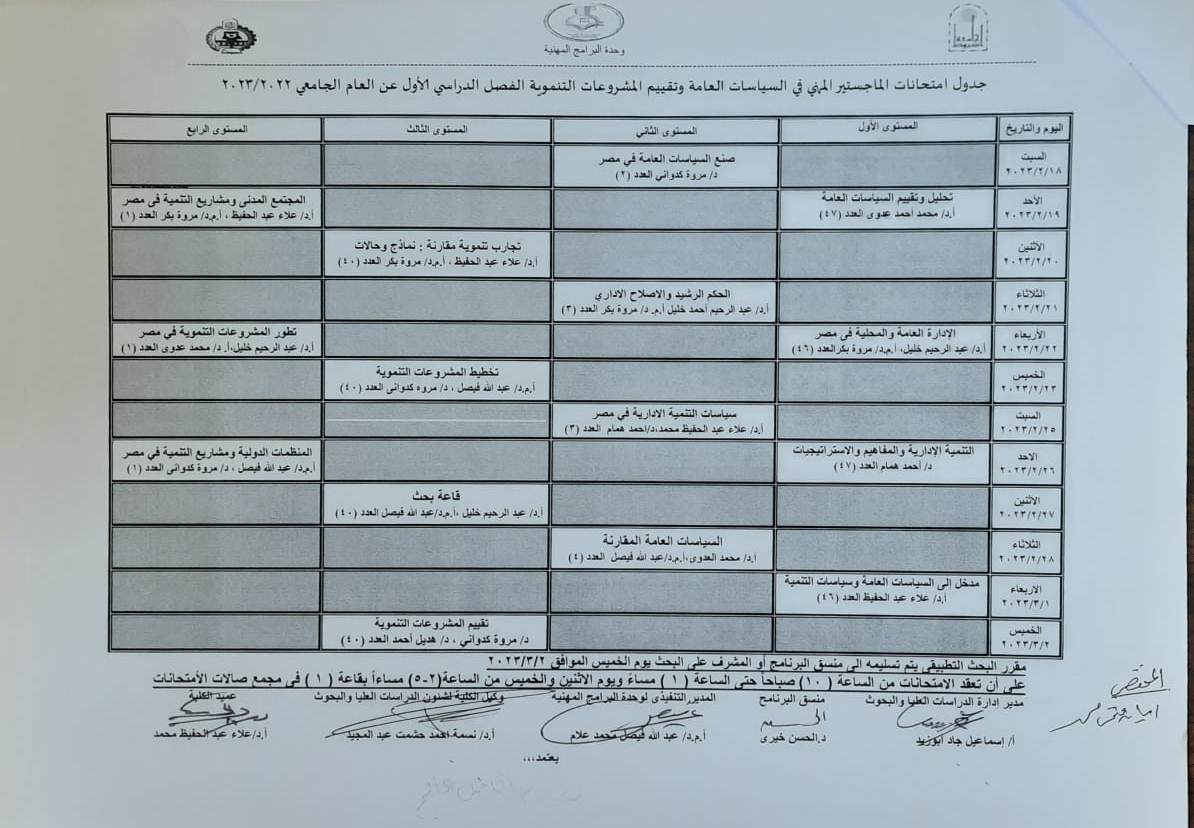 وحدة البرامج المهنية
جدول امتحانات الماجستير المهني في السياسات العامة وتقييم المشروعات التنموية الفصل الدراسي الأول عن العام الجامعي ٢٠٢٣/٢٠٢٢
اليوم والتاريخ المستوى الأول المستوى الثاني المستوى الثالث المستوى الرابع
السبت
٢٠٢٣/٢/١٨
صنع السياسات العامة في مصر
د/ مروة كدواني العدد (٢)
الأحد
٢٠٢٣/٢/١٩
تحليل وتقييم السياسات العامة
أ.د/ محمد أحمد عدوى العدد (٤٧)
المجتمع المدنى ومشاريع التنمية فى مصر
أ.د/ علاء عبد الحفيظ ، أ.م.د/ مروة بكر العدد (١)
الأثنين
٢٠٢٣/٢/٢٠
تجارب تنموية مقارنة : نماذج وحالات
أ.د/ علاء عبد الحفيظ ، أ.م.د/ مروة بكر العدد (٤٠)
الثلاثاء
٢٠٢٣/٢/٢١
الحكم الرشيد والاصلاح الاداري
أ.د/ عبد الرحيم أحمد خليل أ.م. د/ مروة بكر العدد (٣)
الأربعاء
٢٠٢٣/٢/٢٢
الإدارة العامة والمحلية فى مصر
أ.د/ عبد الرحيم خليل، أ.م.د/ مروة بكرالعدد (٤٦)
تطور المشروعات التنموية في مصر
أ.د/ عبد الرحيم خليل،أ. د/ محمد عدوى العدد (١)
الخميس
٢٠٢٣/٢/٢٣
تخطيط المشروعات التنموية
أ.م.د/ عبد الله فيصل ، د/ مروه كدوانى العدد (٤٠)
السبت
٢٠٢٣/٢/٢٥
سياسات التنمية الادارية في مصر
أ.د/ علاء عبد الحفيظ محمد،د/احمد همام العدد (٣)
الاحد
٢٠٢٣/٢/٢٦
التنمية الإدارية والمفاهيم والاستراتيجيات
د/ أحمد همام العدد (٤٧)
المنظمات الدولية ومشاريع التنمية في مصر
أ.م.د/ عبد الله فيصل ، د/ مروة كدوانى العدد (١)
الأثنين
٢٠٢٣/٢/٢٧
قاعة بحث
أ.د/ عبد الرحيم خليل ،أ.م.د/عبد الله فيصل العدد (٤٠)
الثلاثاء
٢٠٢٣/٢/٢٨
السياسات العامة المقارنة
أ.د/ محمد العدوى،أ.م.د/عبد الله فيصل العدد (٤)
الاربعاء
٢٠٢٣/٣/١
مدخل إلى السياسات العامة وسياسات التنمية
أ.د/ علاء عبد الحفيظ العدد (٤٦)
الخميس
٢٠٢٣/٣/٢
تقييم المشروعات التنموية
د/ مروة كدواني ، د/ هديل أحمد العدد (٤٠)
مقرر البحث التطبيقي يتم تسليمه الى منسق البرنامج أو المشرف على البحث يوم الخميس الموافق ٢٠٢٣/٣/٢
على أن تعقد الامتحانات من الساعة (١٠) صباحاً حتى الساعة (١) مساءً ويوم الاثنين والخميس من الساعة(٢-٥) مساءاً بقاعة (١) فى مجمع صالات الأمتحانات
مدير إدارة الدراسات العليا والبحوث منسق البرنامج المدير التنفيذى لوحدة البرامج المهنية وكيل الكلية لشئون الدراسات العليا والبحوث عميد الكلية
أ/ إسماعيل جاد أبوزيد د.الحسن خيرى أ.م.د/ عبد الله فيصل محمد علام أ.د/ نسمة أحمد حشمت عبد المجيد أ.د/علاء عبد الحفيظ محمد
يعتمد،،،
المختص